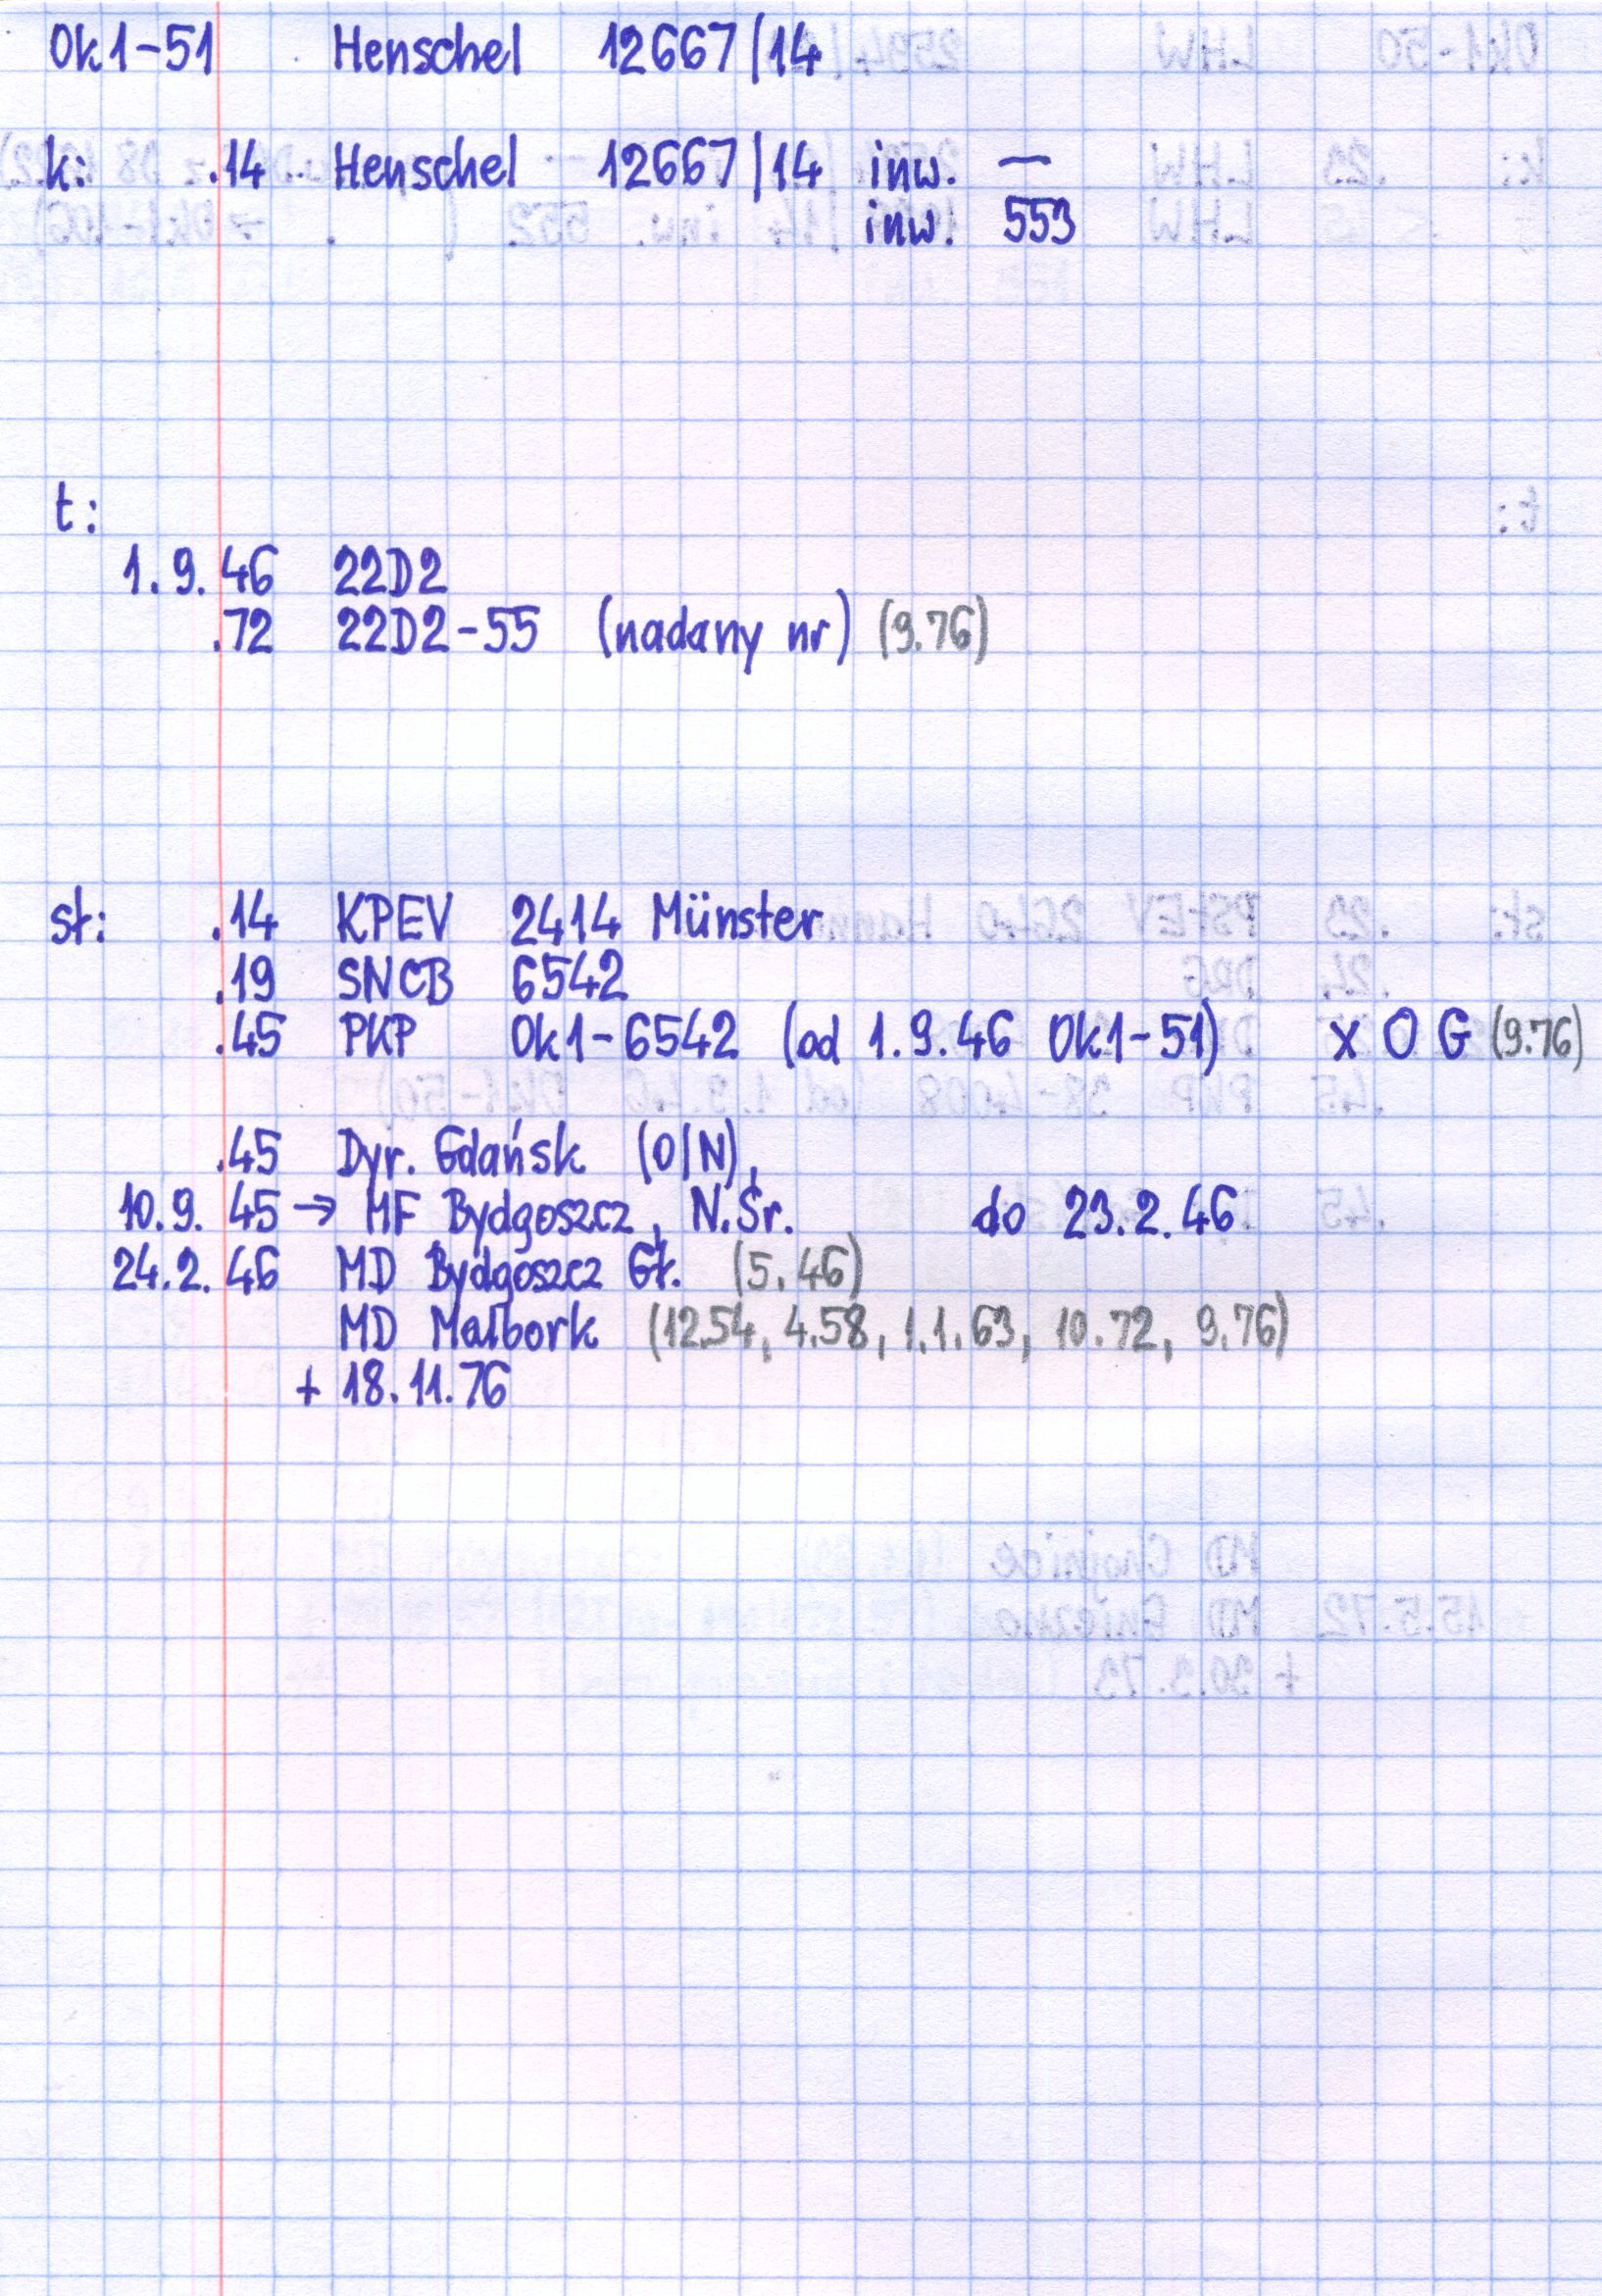 Ok1-51 Henschel 12667/14
k: .14 Henschel 12667/14 inw. —
inw. 553
t:
1.9.46 22D2
.72 22D2-55 (nadany nr) (9.76)
st: .14 KPEV 2414 Münster
.19 SNCB 6542
.45 PKP Ok1-6542 (od 1.9.46 Ok1-51) x O G (9.76)
.45 Dyr. Gdańsk (O/N),
10.9.45 → MF Bydgoszcz, N.Śr. do 23.2.46
24.2.46 MD Bydgoszcz Gł. (5.46)
MD Malbork (12.54, 4.58, 1.1.63, 10.72, 9.76)
+ 18.11.76